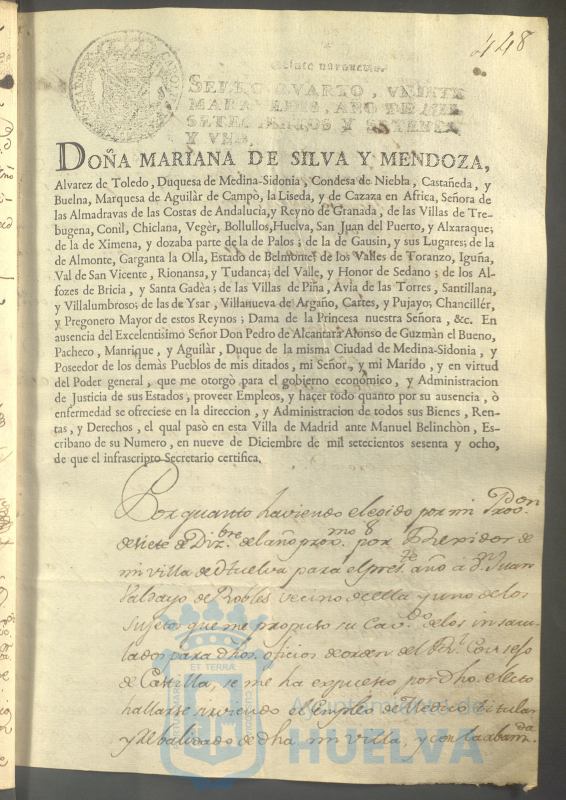 448
SELLO QUARTO, VEINTE
MARAVEDIS, AÑO DE MIL
SETECIENTOS Y SETENTA
Y UNO.
DOÑA MARIANA DE SILVA Y MENDOZA,
Alvarez de Toledo, Duquesa de Medina-Sidonia, Condesa de Niebla, Castañeda, y
Buelna, Marquesa de Aguilàr de Campò, la Liseda, y de Cazaza en Africa, Señora de
las Almadravas de las Costas de Andalucia, y Reyno de Granada, de las Villas de Tre-
bugena, Conil, Chiclana, Vegèr, Bollullos, Huelva, San Juan del Puerto, y Alxaraque;
de la de Ximena, y dozaba parte de la de Palos; de la de Gausin, y sus Lugares; de la
de Almonte, Garganta la Olla, Estado de Belmonte; de los Valles de Toranzo, Iguña,
Val de San Vicente, Rionansa, y Tudanca; del Valle, y Honor de Sedano; de los Al-
fozes de Bricia, y Santa Gadèa; de las Villas de Piña, Avia de las Torres, Santillana,
y Villalumbroso; de las de Ysar, Villanueva de Argaño, Cartes, y Pujayo; Chancillér,
y Pregonero Mayor de estos Reynos; Dama de la Princesa nuestra Señora, &c. En
ausencia del Excelentisimo Señor Don Pedro de Alcantara Alonso de Guzmàn el Bueno,
Pacheco, Manrique, y Aguilàr, Duque de la misma Ciudad de Medina-Sidonia, y
Poseedor de los demàs Pueblos de mis ditados, mi Señor, y mi Marido, y en virtud
del Poder general, que me otorgò para el gobierno económico, y Administracion
de Justicia de sus Estados, proveer Empleos, y hacer todo quanto por su ausencia, ò
enfermedad se ofreciese en la direccion, y Administracion de todos sus Bienes, Ren-
tas, y Derechos, el qual pasò en esta Villa de Madrid ante Manuel Belinchòn, Es-
cribano de su Numero, en nueve de Diciembre de mil setecientos sesenta y ocho,
de que el infrascripto Secretario certifica.
Por quanto haviendo elegido por mi
de siete de Diz.bre del año prox.mo p. por Regidor de
mi villa de Huelva para el pres.te año a D.n Juan
de Robles vecino de ella y uno de los
sujetos que me propuso su Cav.do de los insacu-
lados para dhos. oficios de orden del R.l Consejo
de Castilla, se me ha expuesto por dho. electo
hallarse sirviendo el Empleo de Medico titular
y de dha. mi villa, y con la
ET TERRÆ
Ayuntamiento de
HUELVA